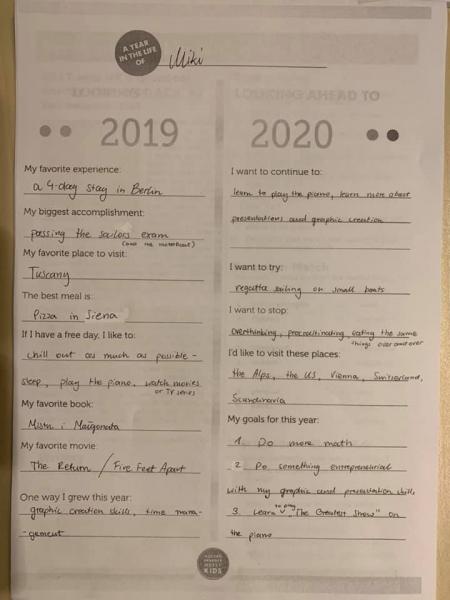 A YEAR
IN THE LIFE
OF
Miki
LOOKING AHEAD TO
2019
2020
My favorite experience:
a 4-day stay in Berlin
My biggest accomplishment:
passing the sailors exam
(and the motorboat)
My favorite place to visit:
Tuscany
The best meal is:
Pizza in Siena
If I have a free day, I like to:
chill out as much as possible -
sleep, play the piano, watch movies
or TV series
My favorite book:
Mistrz i Małgorzata
My favorite movie:
The Return / Five Feet Apart
One way I grew this year:
graphic creation skills, time mana-
-gement
I want to continue to:
learn to play the piano, learn more about
presentations and graphic creation
I want to try:
regatta sailing on small boats
I want to stop:
overthinking, procrastinating, eating the same
things over and over
I'd like to visit these places:
the Alps, the US, Vienna, Switzerland,
Scandinavia
My goals for this year:
1. Do more math
2. Do something entrepreneurial
with my graphic and presentation skills
3. Learn to play "The Greatest Show" on
the piano
KIDS